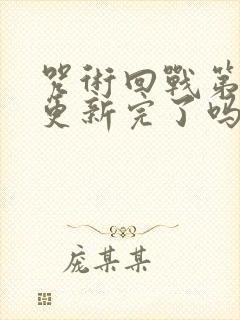 咒術回戰第
更新完了吗
庞某某